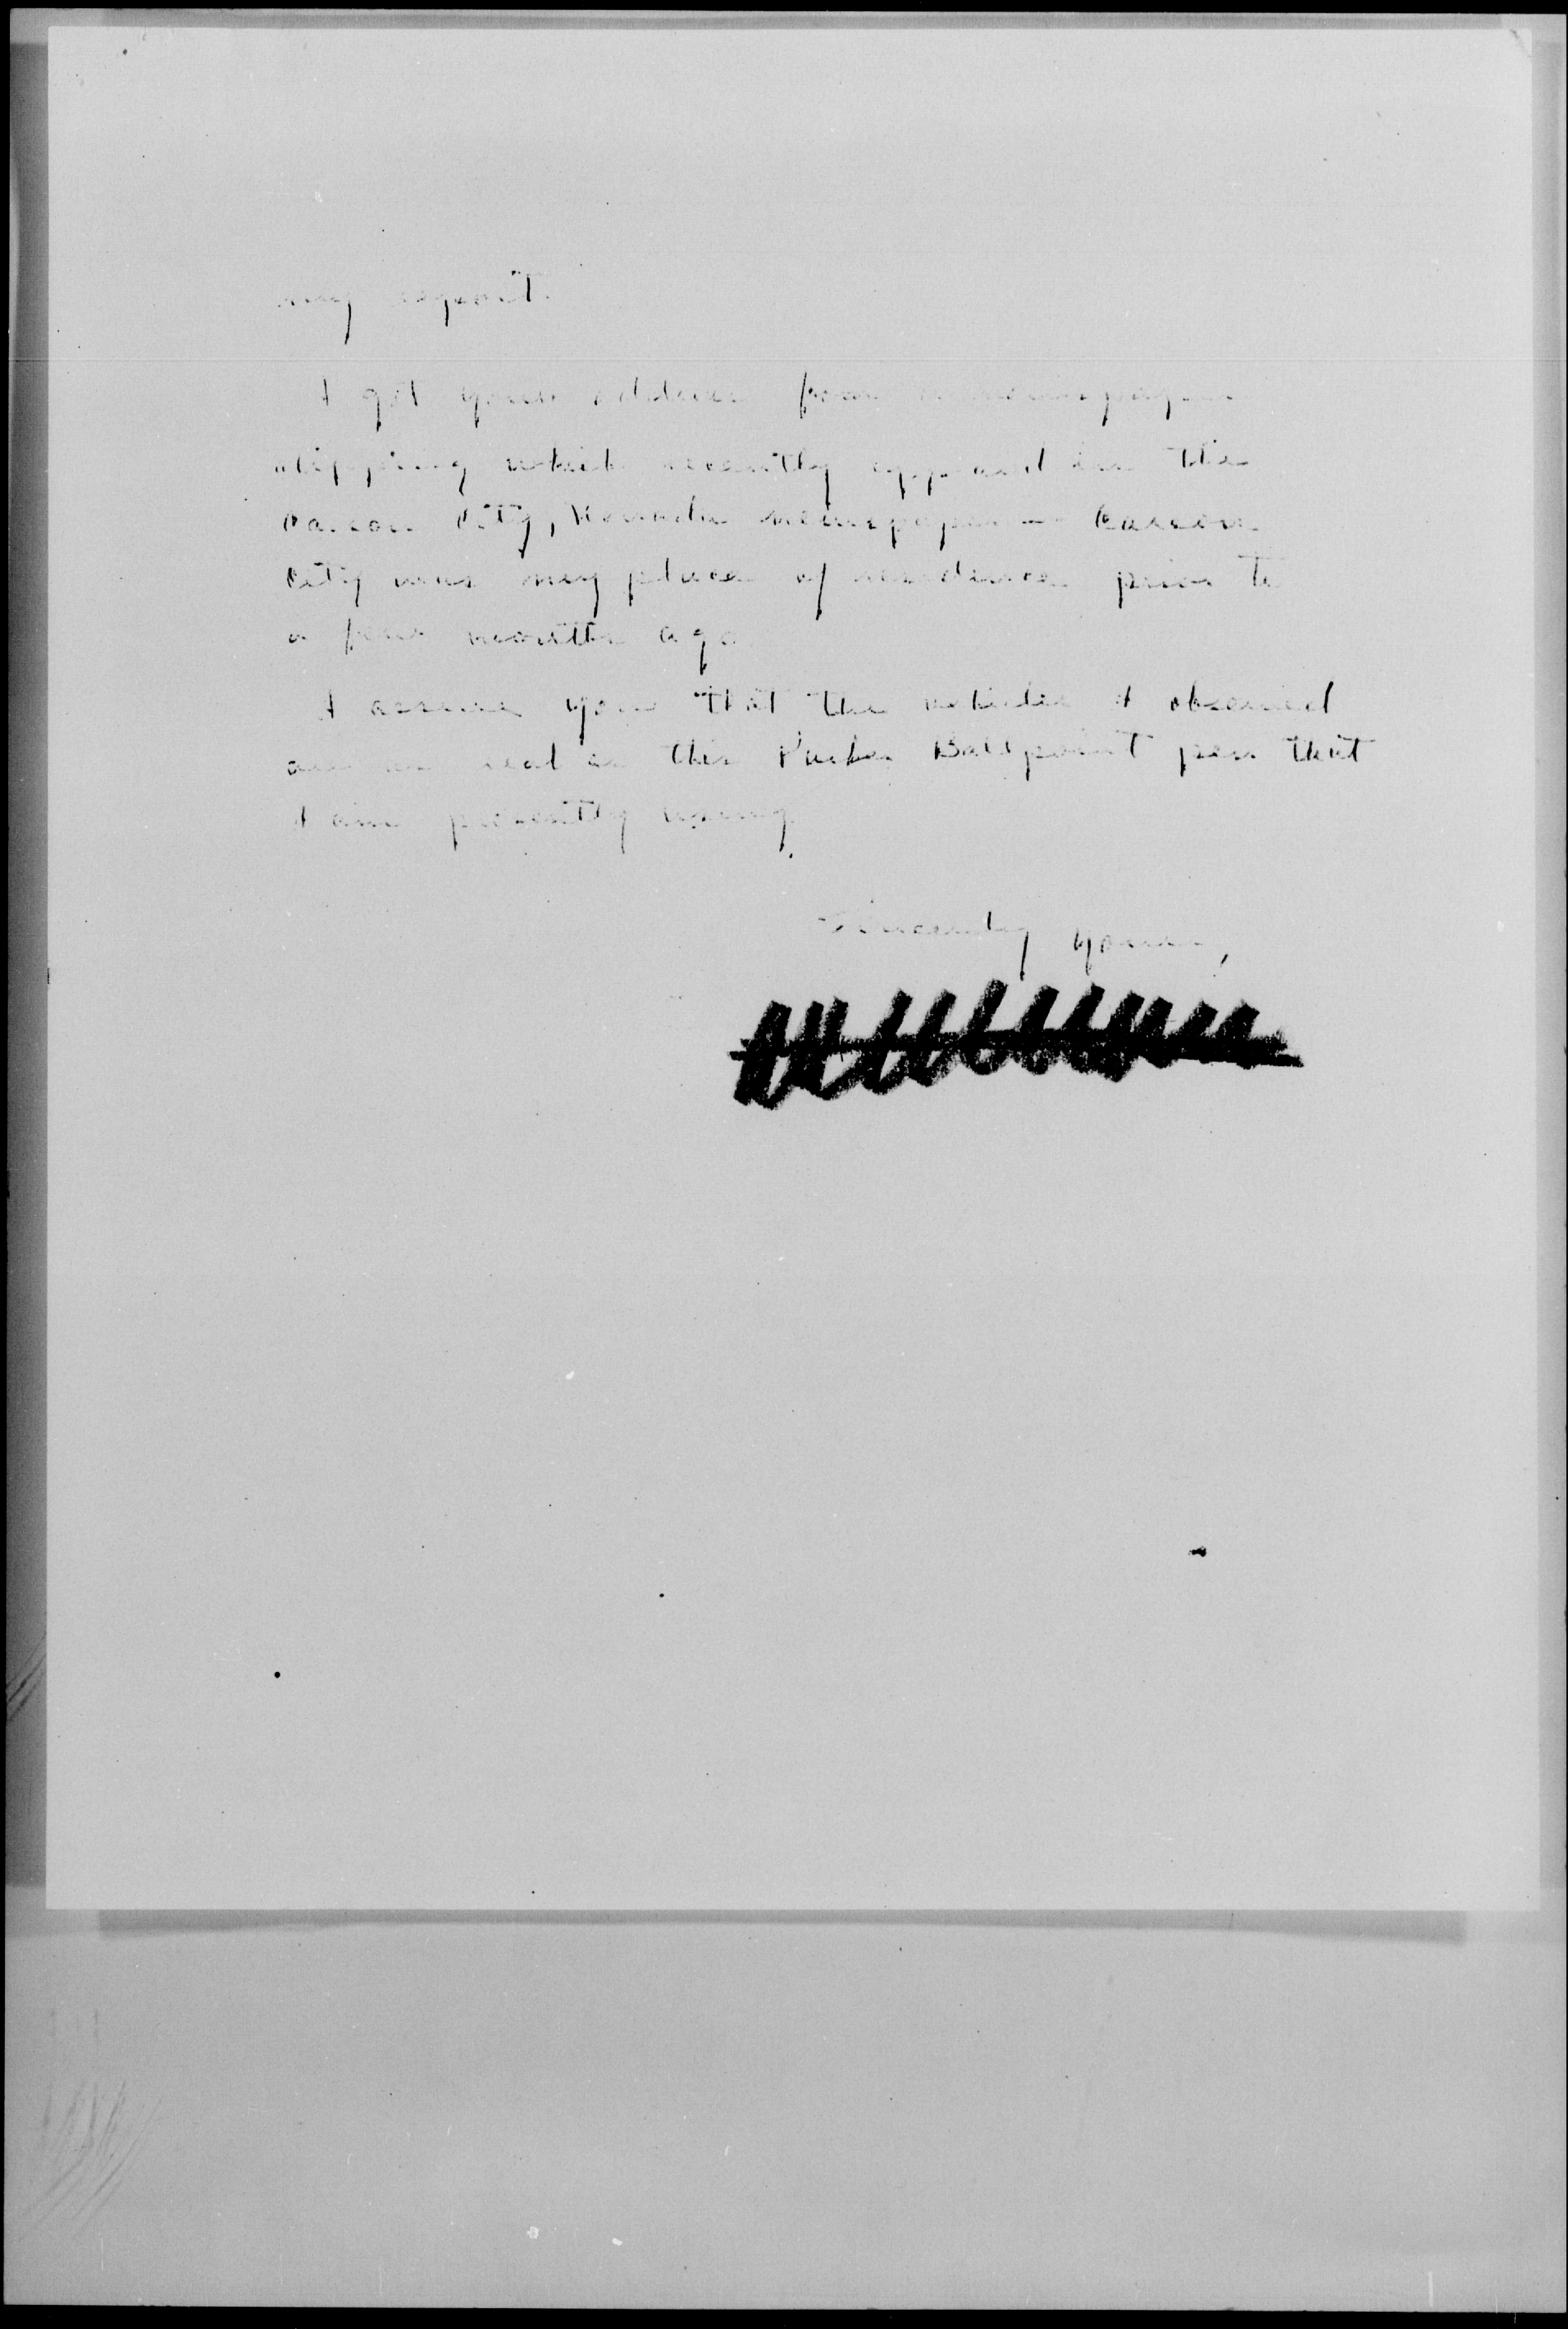 my report.
I got your address from a newspaper
clipping which recently appeared in the
Carson City, Nevada newspaper — Carson
City was my place of residence prior to
a few months ago.
I assure you that the vehicles I observed
are as real as this Parker Ballpoint pen that
I am presently using.
Sincerely yours,